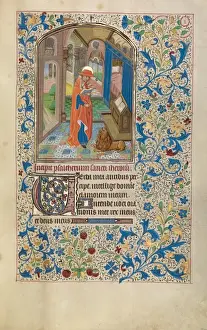 Incipit psalterium sancti iheronimi
Verba mea auribus per
cipe domine intellige
clamorem meum
Intende voci ora
tionis mee rex meus
et deus meus